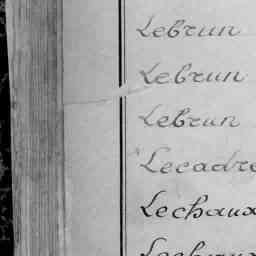 Lebrun
Lebrun
Lebrun
Lecadre
Lechaux